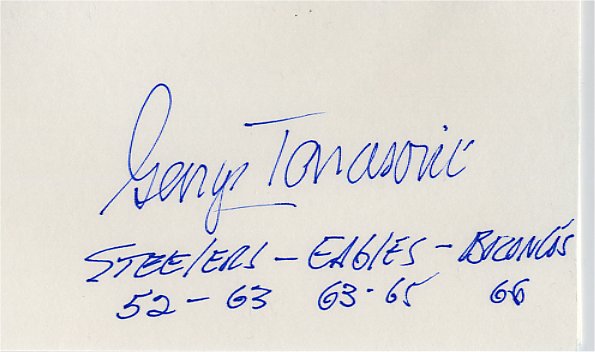 George Tarasovic
STEElERS - EAGlES - BRONCOS
52 - 63 63-65 66